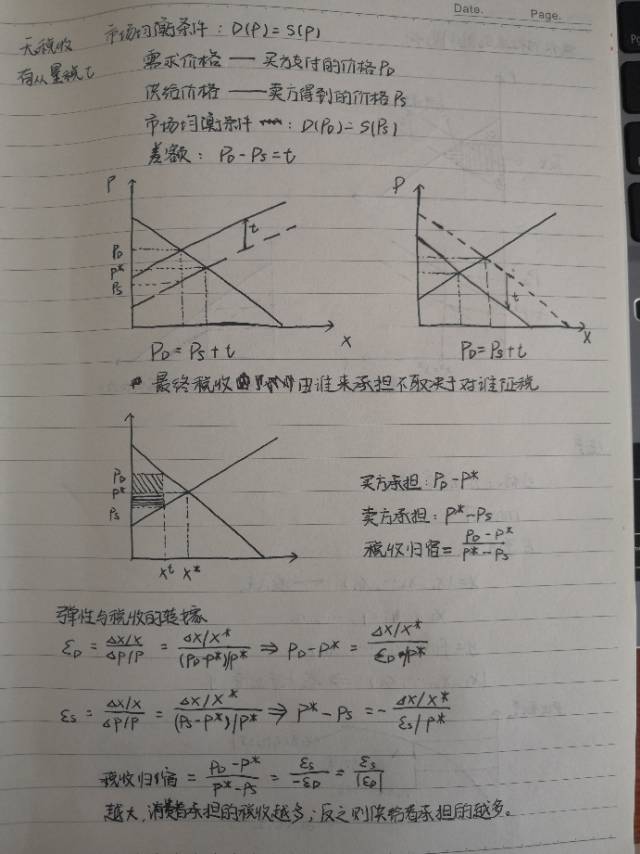 Date. Page.
无税收 市场均衡条件：D(P)=S(P)
有从量税t 需求价格 — 买方支付的价格PD
供给价格 — 卖方得到的价格PS
市场均衡条件：D(PD)=S(PS)
差额：PD-PS=t
P P
t
PD
P*
PS t
X X
PD=PS+t PD=PS+t
最终税收由谁来承担不取决于对谁征税
PD 买方承担：PD-P*
P*
PS 卖方承担：P*-PS
税收归宿=(PD-P*)/(P*-PS)
Xt X*
弹性与税收的转嫁
εD=(ΔX/X)/(ΔP/P)=(ΔX/X*)/((PD-P*)/P*)⇒PD-P*=(ΔX/X*)/(εD/P*)
εS=(ΔX/X)/(ΔP/P)=(ΔX/X*)/((PS-P*)/P*)⇒P*-PS=-(ΔX/X*)/(εS/P*)
税收归宿=(PD-P*)/(P*-PS)=εS/-εD=εS/|εD|
越大，消费者承担的税收越多；反之则供给者承担的越多。